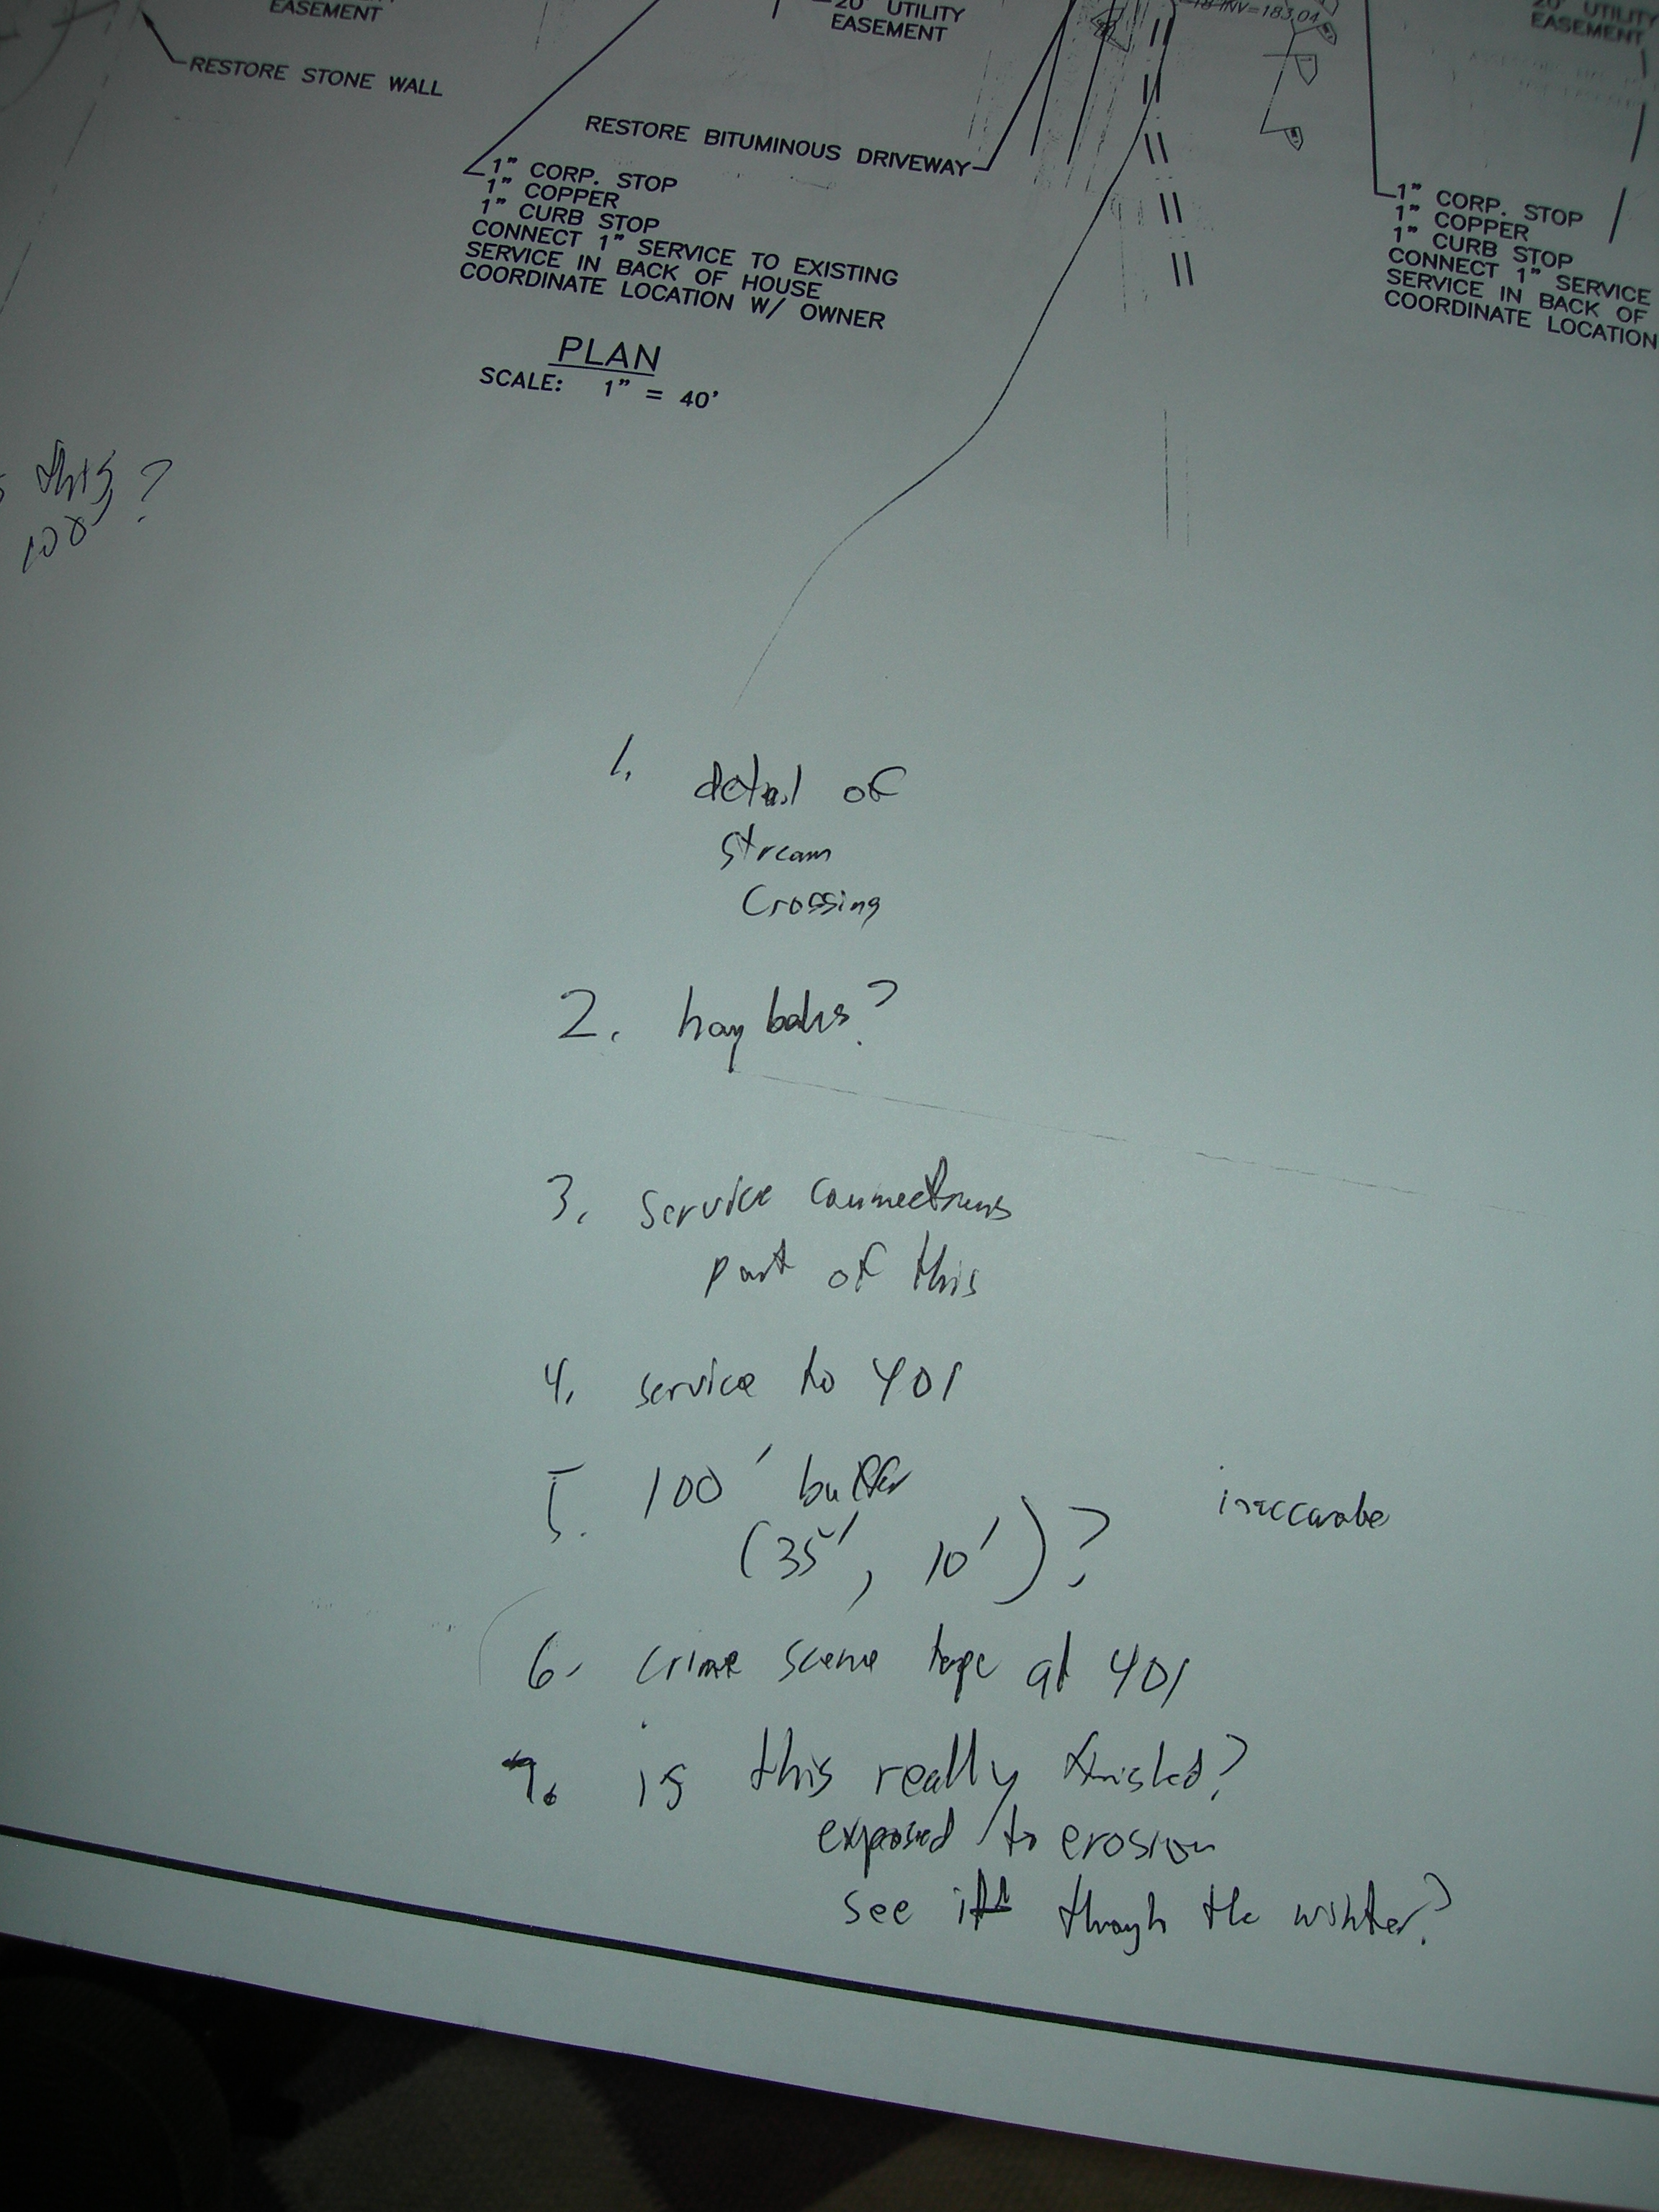 EASEMENT
RESTORE STONE WALL
20' UTILITY
EASEMENT
INV=183.04
20' UTILITY
EASEMENT
RESTORE BITUMINOUS DRIVEWAY
1" CORP. STOP
1" COPPER
1" CURB STOP
CONNECT 1" SERVICE TO EXISTING
SERVICE IN BACK OF HOUSE
COORDINATE LOCATION W/ OWNER
1" CORP. STOP
1" COPPER
1" CURB STOP
CONNECT 1" SERVICE
SERVICE IN BACK OF
COORDINATE LOCATION
PLAN
SCALE: 1" = 40'
this ?
100'
1. detail of
stream
Crossing
2. hay bales?
3. service connections
part of this
4. service to 401
5. 100' buffer
(35', 10')?
inaccurate
6. crime scene tape at 401
7. is this really finished?
exposed to erosion
see it through the winter?